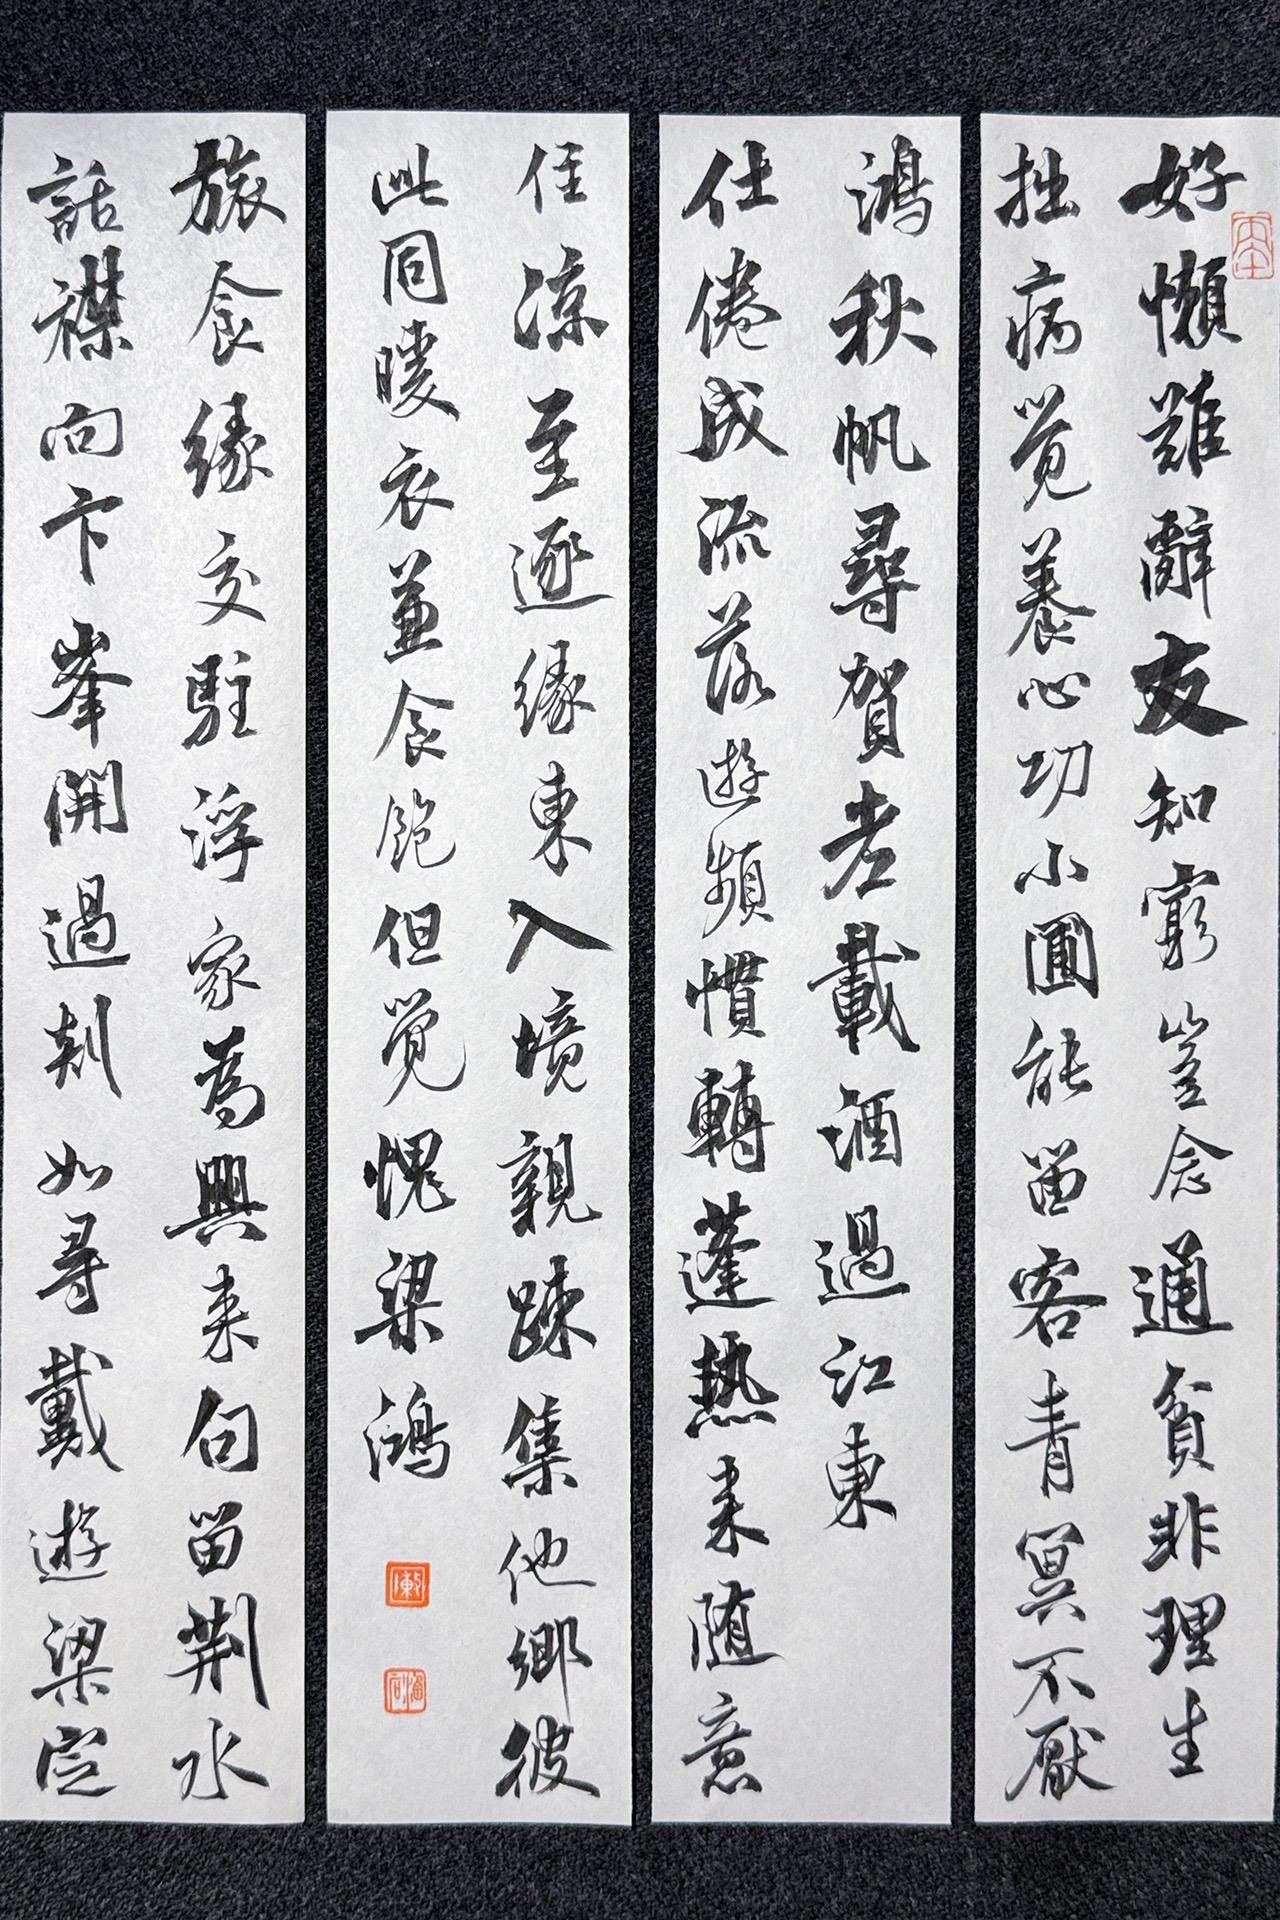 好懶難辭友知窮豈念通貧非理生
拙病覺養心功小圃能留客青冥不厭
鴻秋帆尋賀老載酒過江東
仕倦成流落遊頻慣轉蓬热来随意
住涼至逐緣東入境親疎集他鄉彼
此同暖衣兼食飽但覺愧梁鴻
旅食緣交駐浮家為興来句留荆水
話襟向卞峯開過剡如尋戴遊梁定